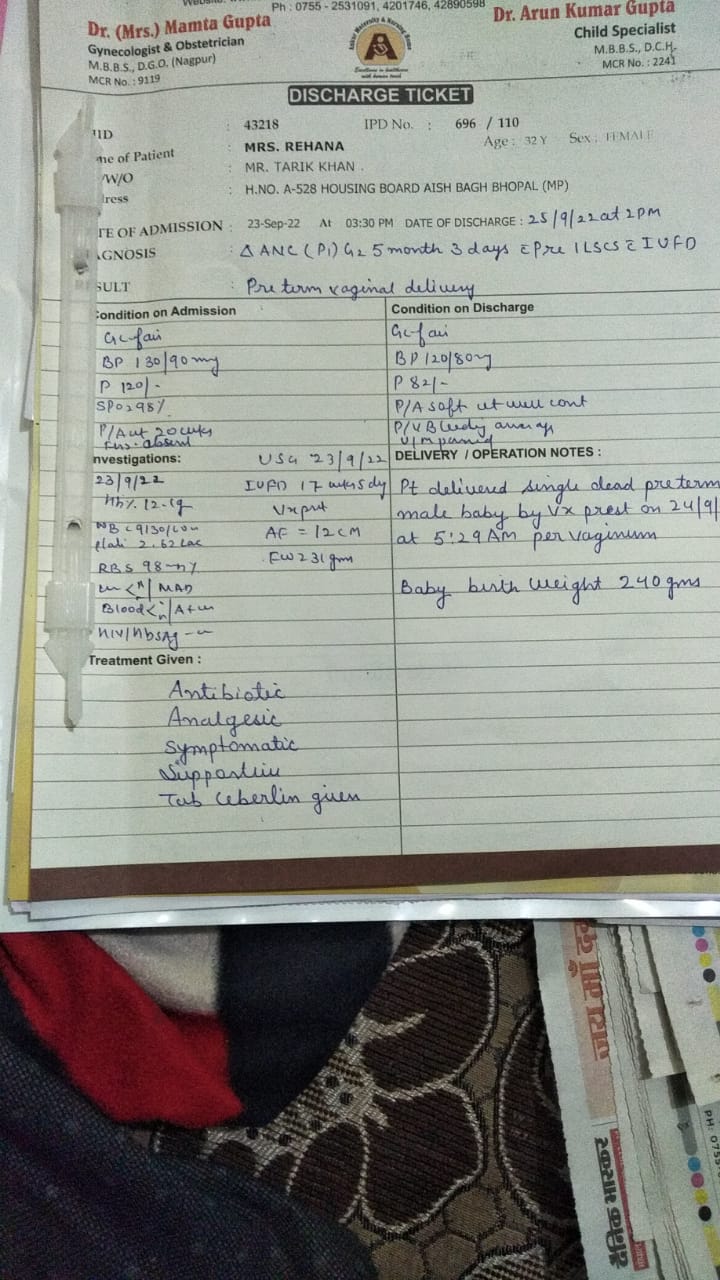 Ph : 0755 - 2531091, 4201746, 42890598
Dr. (Mrs.) Mamta Gupta
Gynecologist & Obstetrician
M.B.B.S., D.G.O. (Nagpur)
MCR No. : 9119
Dr. Arun Kumar Gupta
Child Specialist
M.B.B.S., D.C.H.
MCR No. : 2241
DISCHARGE TICKET
: 43218 IPD No. : 696 / 110
me of Patient : MRS. REHANA Age : 32 Y Sex : FEMALE
/W/O : MR. TARIK KHAN .
ress : H.NO. A-528 HOUSING BOARD AISH BAGH BHOPAL (MP)
TE OF ADMISSION : 23-Sep-22 At 03:30 PM DATE OF DISCHARGE : 25/9/22 at 2 PM
GNOSIS : Δ ANC (P1) G2 5 month 3 days c̄ Pre 1 LSCS c̄ IUFD
SULT : Pre term vaginal delivery
Condition on Admission
GC-fair
BP 130/90 mg
P 120/-
SPO2 98%
P/A ut 20 wks
FHS-absent
Condition on Discharge
GC-fair
BP 120/80
P 82/-
P/A soft ut well cont
P/V Bleedy
nvestigations:
23/9/22
Hb% 12.1g
9130/
2.62 Lac
RBS 98
Blood
HIV/HbSAg
USG 23/9/22
IUFD 17 wks 5 dy
Vx
AF = 12 CM
FW 231 gms
DELIVERY / OPERATION NOTES :
Pt delivered single dead preterm
male baby by Vx prest on 24/9/
at 5:29 AM per vaginum
Baby birth weight 240 gms
Treatment Given :
Antibiotic
Analgesic
Symptomatic
Supportive
Tab Ceberlin given